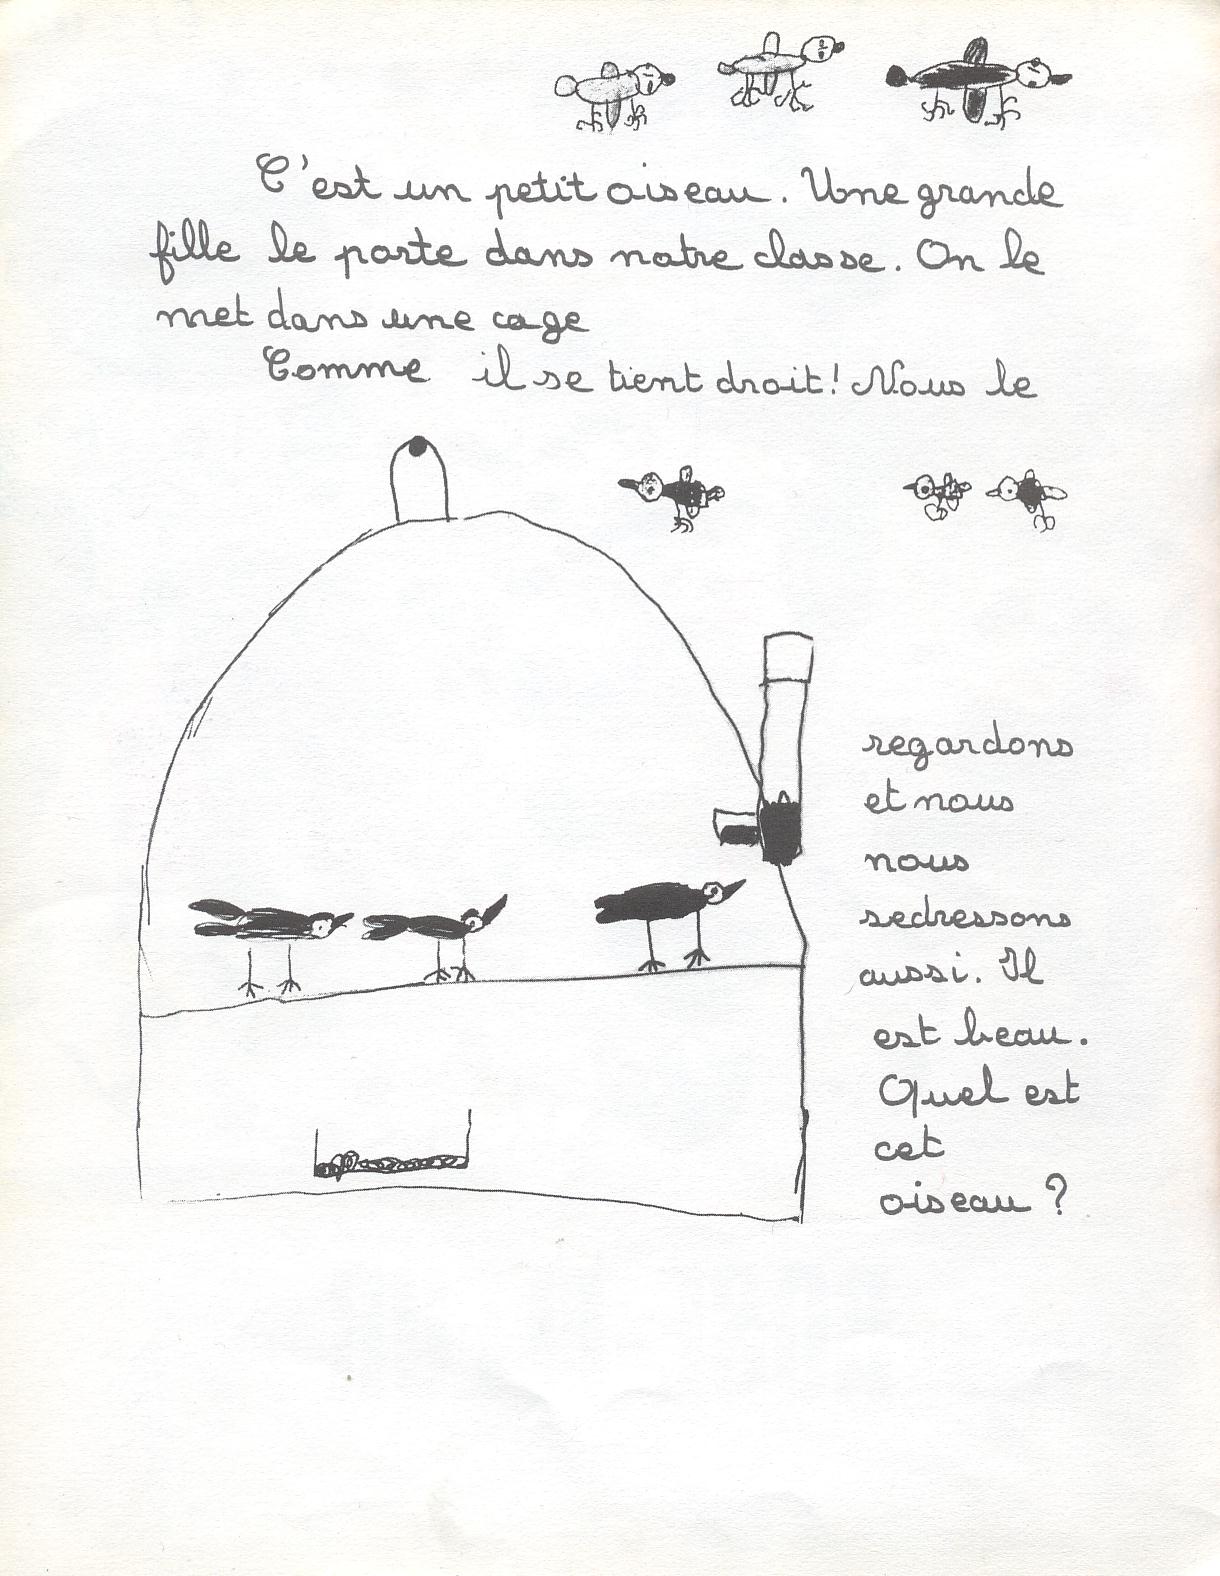 C'est un petit oiseau. Une grande
fille le porte dans notre classe. On le
met dans une cage
Comme il se tient droit! Nous le
regardons
et nous
nous
sedressons
aussi. Il
est beau.
Quel est
cet
oiseau ?